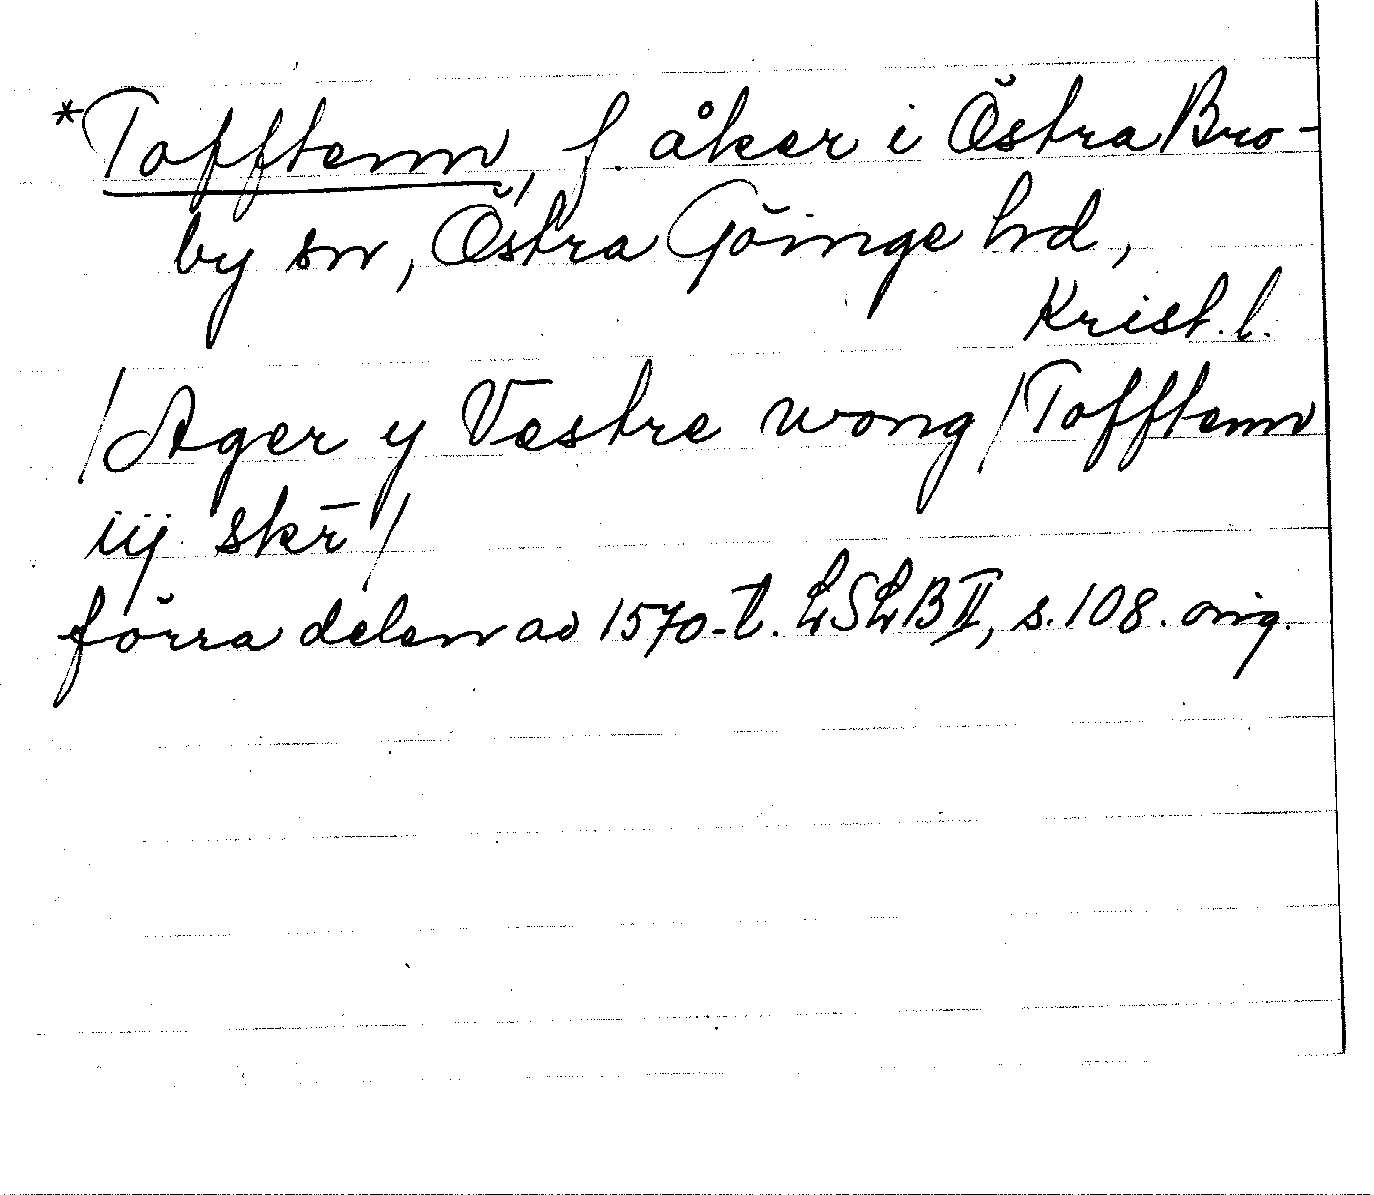 *Tofftenn, f. åker i Östra Bro-
by sn, Östra Göinge hd,
Krist. l.
/Ager y Vestre wong/Tofftenn
iij skr̄/
förra delen av 1570-t. LSLB II, s. 108. orig.